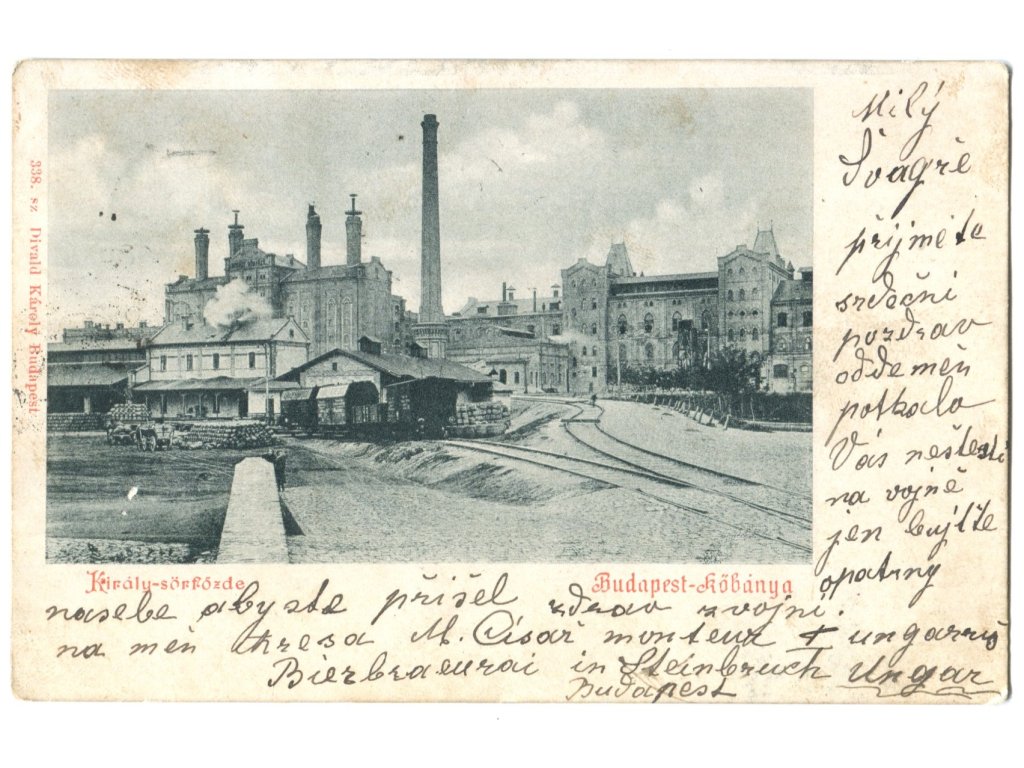 338. sz Divald Károly Budapest
Király-sörfőzde
Budapest-Kőbánya
Milý
Švagře
přijměte
srdečni
pozdrav
oddeměn
potkalo
Vás neštesti
na vojně
jen bujťte
opatrny
nasebe abyste přišel zdrav zvojni.
na měn kresa M. Císař monteur I ungarriš
Bierbraeurai in Steinbruch Ungar
Budapest